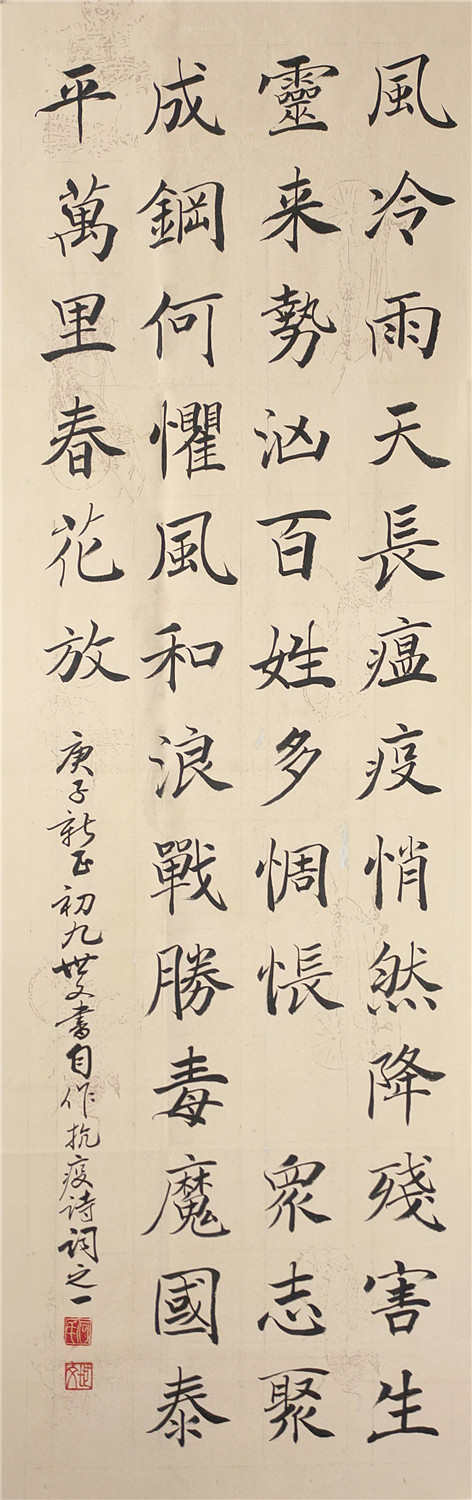 風冷雨天長瘟疫悄然降殘害生
靈来勢汹百姓多惆悵 衆志聚
成鋼何懼風和浪戰勝毒魔國泰
平萬里春花放
庚子新正初九世文書自作抗疫詩詞之一